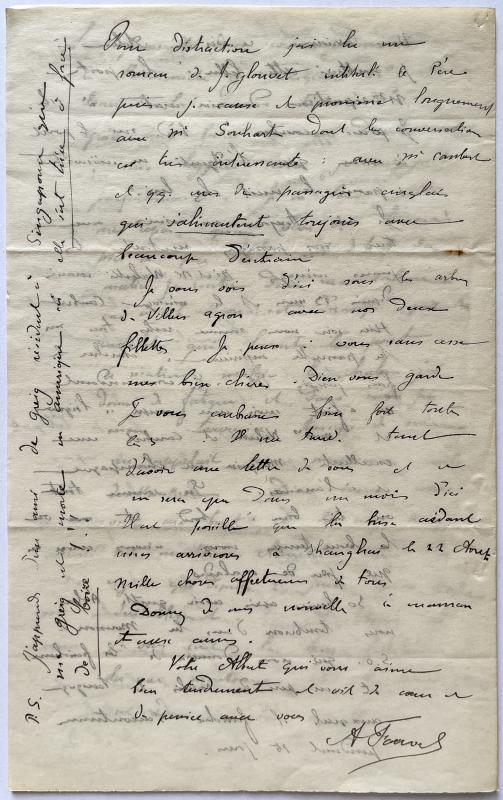 Pour distraction j'ai lu un
roman de J. Glouvet intitulé le Père
puis je cause et promène longuement
avec Mr Souhart dont la conversation
est très intéressante : avec Mr
et qq. uns des passagers anglais
qui s'alimentent toujours avec
beaucoup d'entrain
Je vous vois d'ici sous les arbres
de Villers agron avec nos deux
fillettes. Je pense à vous sans cesse
mes bien chères. Dieu vous garde
Je vous embrasse bien fort toutes
les 3. Il me tarde tant
d'avoir une lettre de vous et ce
ne sera que dans un mois d'ici
Il est possible que la brise aidant
nous arriverons à Shanghai le 22 Août
mille choses affectueuses de tous
Donnez de mes nouvelles à maman
et aux amis.
Votre Albert qui vous aime
bien tendrement et vit de cœur et
de pensée avec vous
A
P.S. J'apprends d'un ami de Greig résident à Singapour que
me Greig est morte en Amérique où elle s'est tuée à force
de boire !!